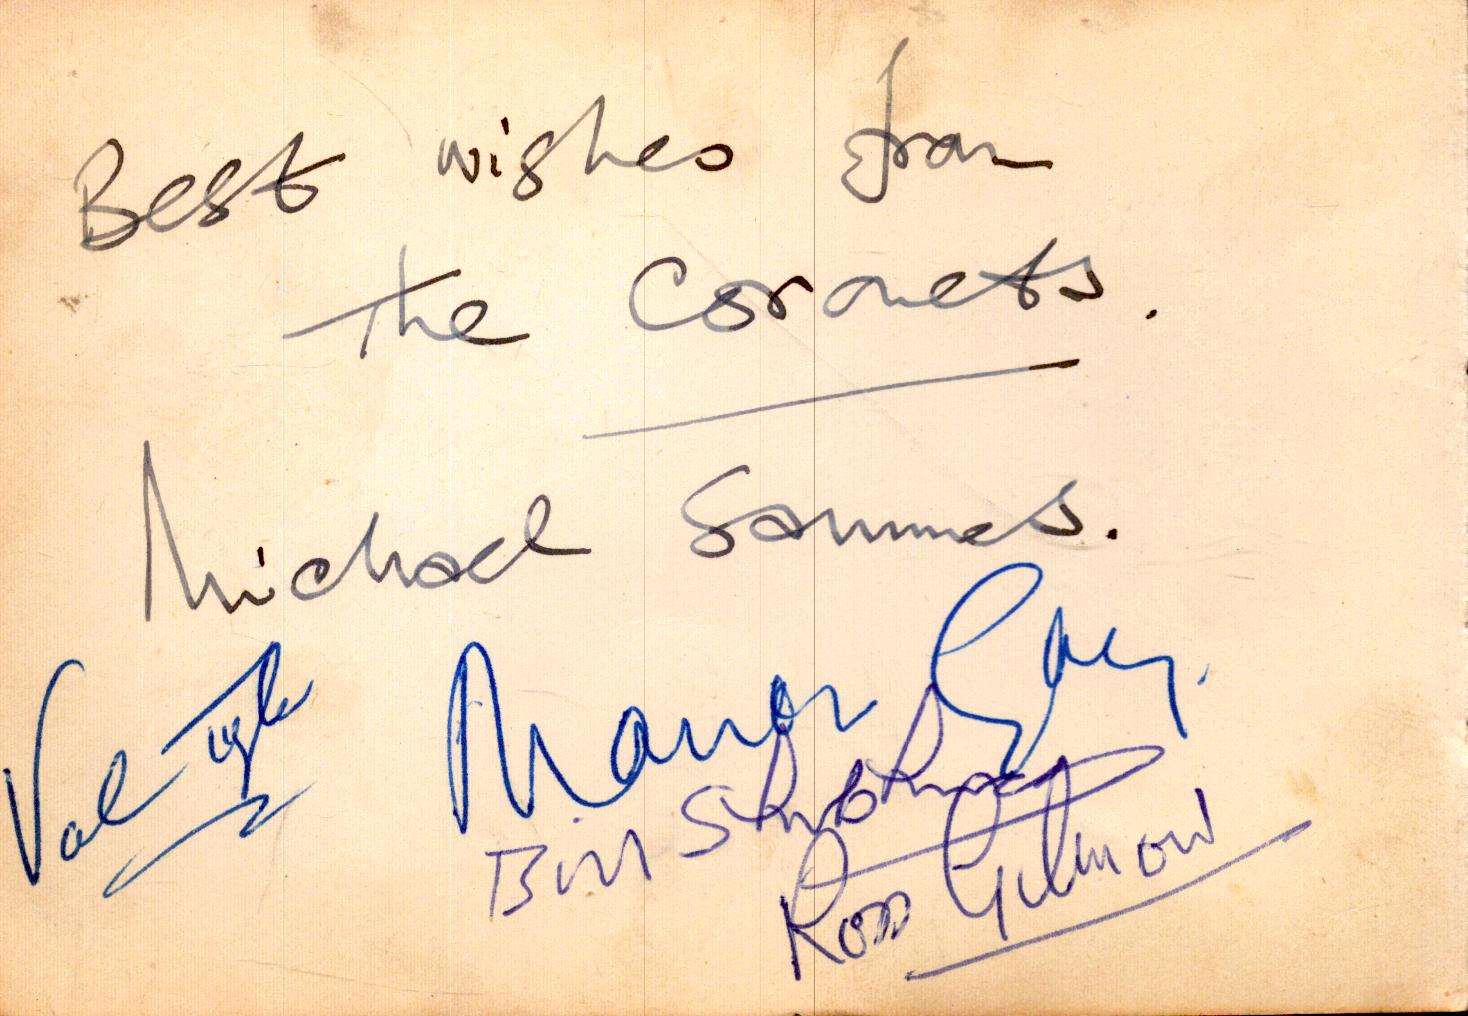 Best wishes from
the Coronets.
Michael Sammes.
Marion Gay.
Val
Bill
Ross Gilmour